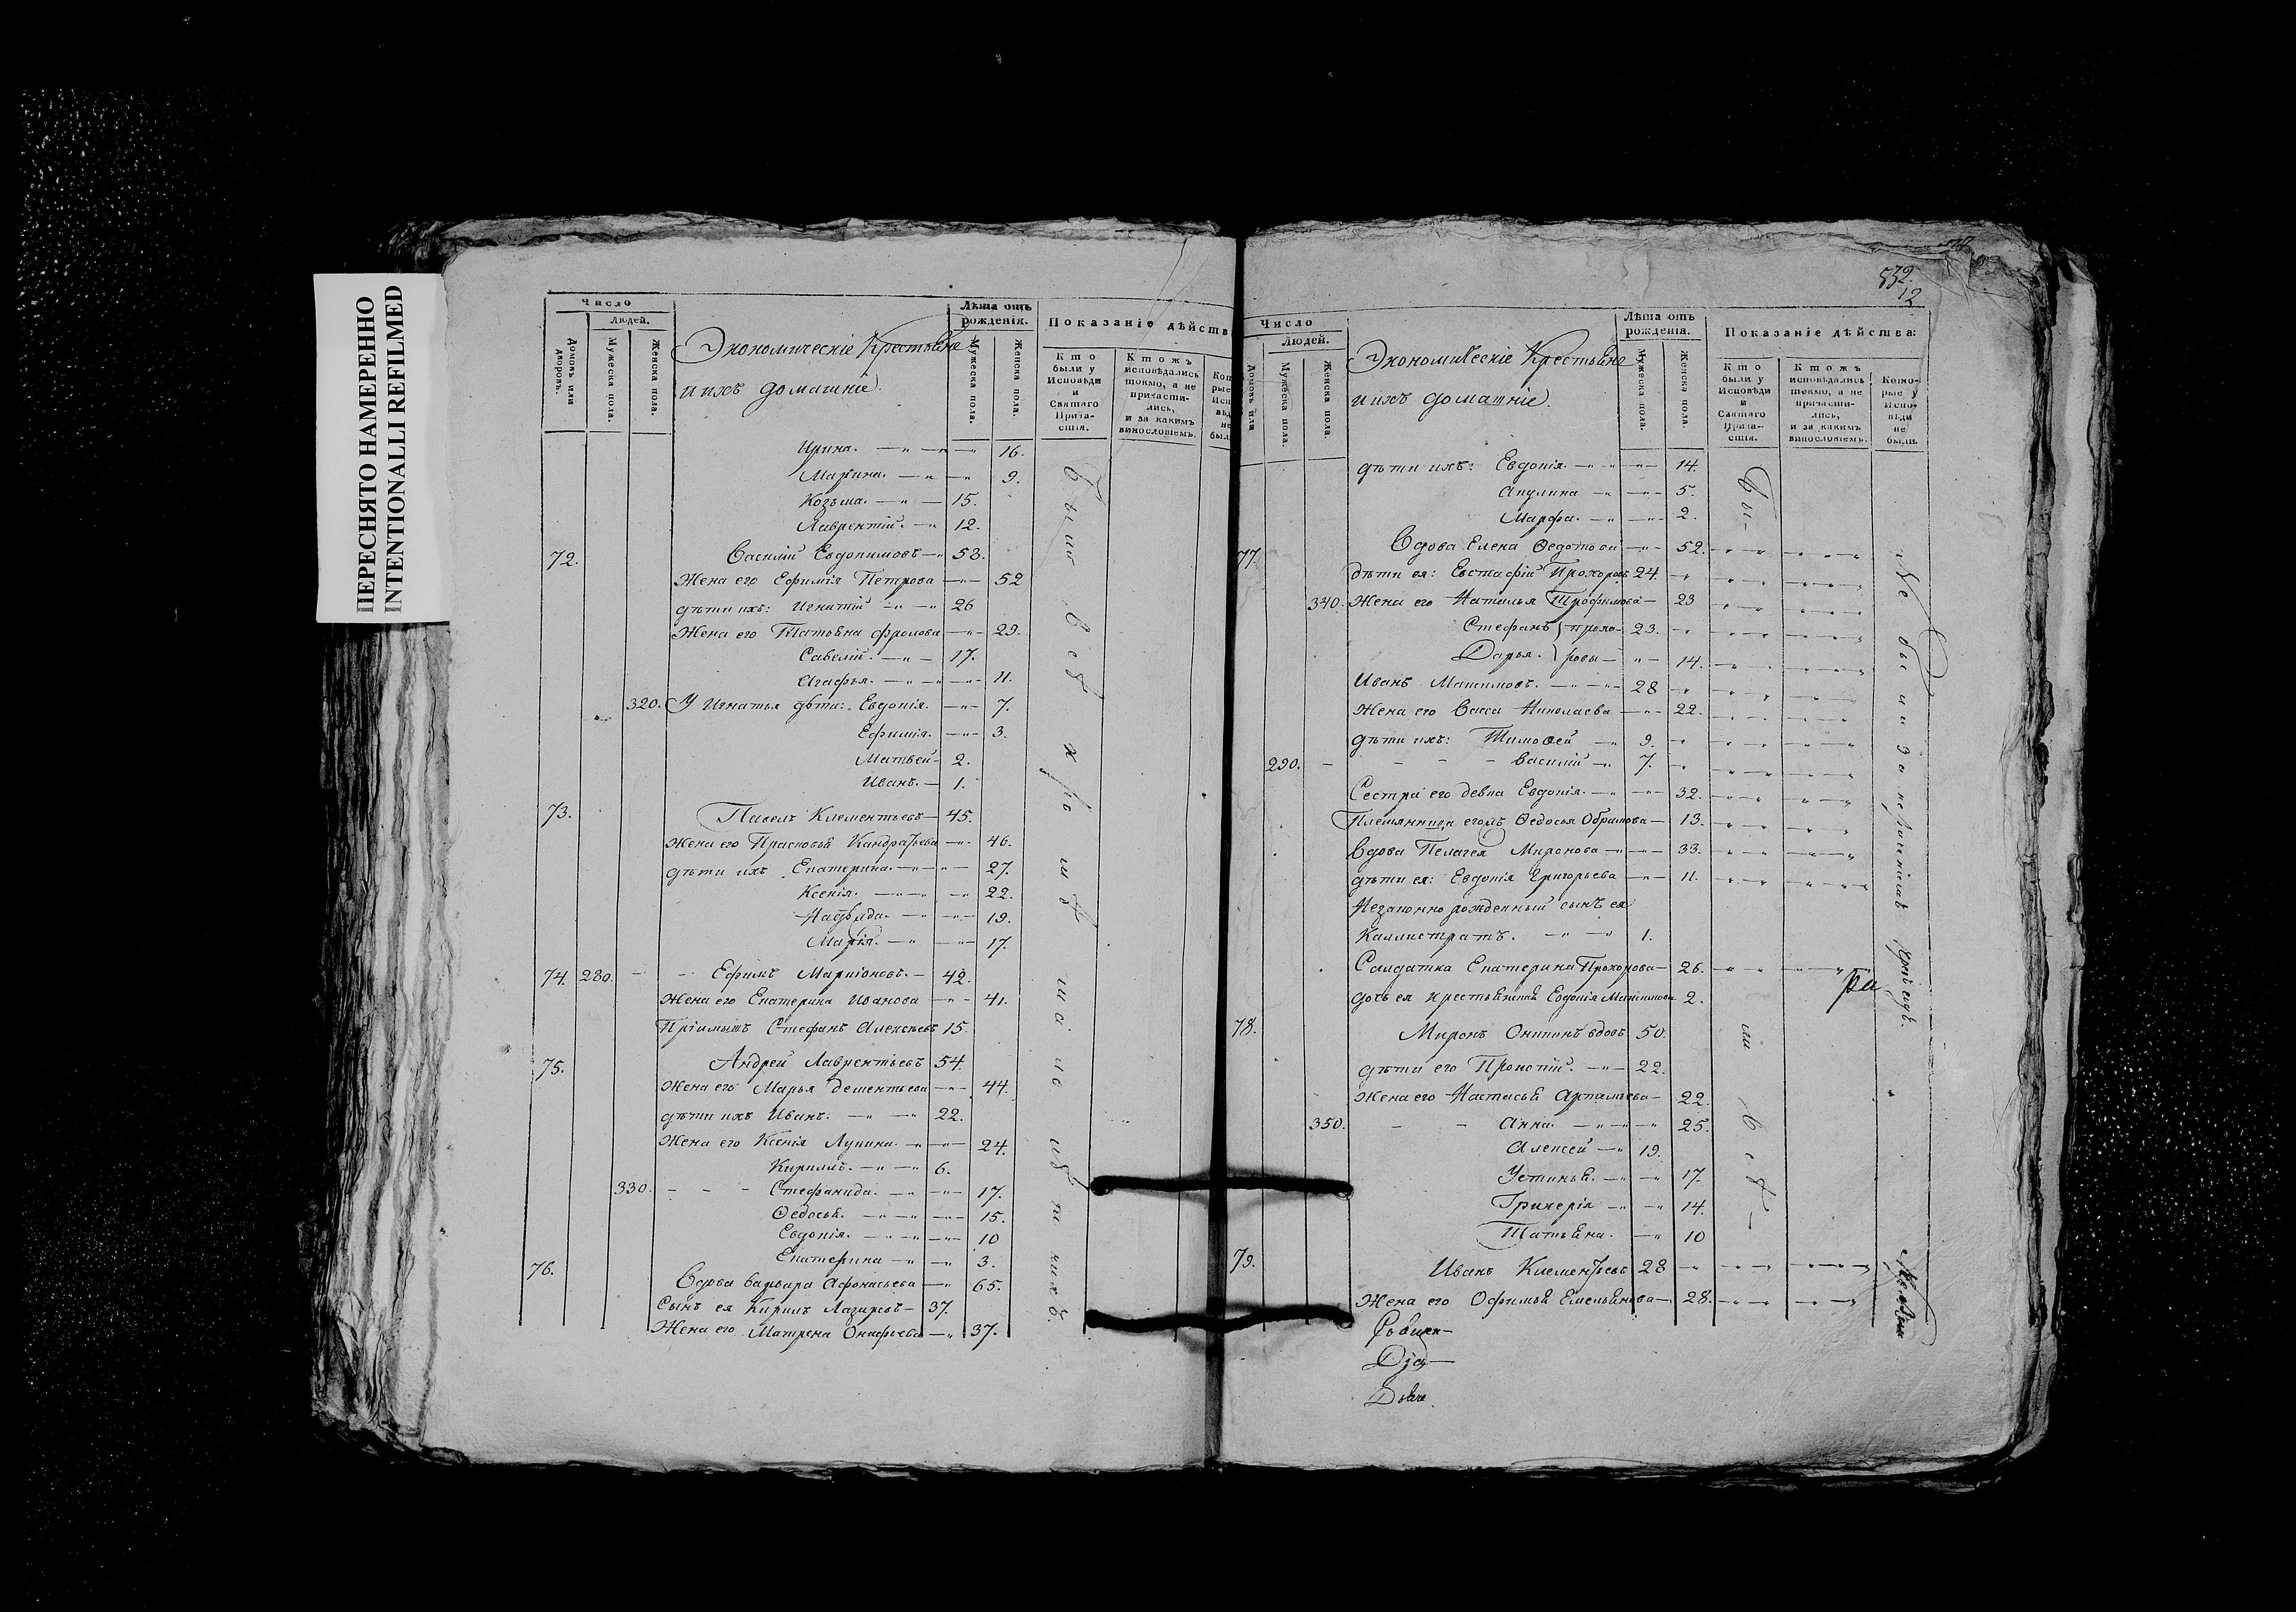 ПЕРЕСНЯТО НАМЕРЕННО
INTENTIONALLI REFILMED
Число
Людей.
Домовъ или дворовъ.
Мужеска пола.
Женска пола.
Экономическіе Крестьяне
и ихъ домашніе.
Лѣта отъ рожденія.
Мужеска пола.
Женска пола.
Показаніе дѣйств
Кто были у Исповѣди и Святаго Прича-стія.
Ктожъ исповѣдались токмо, а не причасти-лись, и за какимъ винословіемъ.
Ирина. 16.
Марина. 9.
Козьма. 15.
Лаврентій. 12.
72. Василій Евдокимовъ 53.
Жена его Ефимія Петрова 52
дѣти ихъ: Игнатій 26
Жена его Татьяна Фролова 29.
Савелій. 17.
Агафья. 11.
320. У Игнатья дѣти: Евдокія. 7.
Ефимія. 3.
Матвей 2.
Иванъ. 1.
73. Павелъ Клементьевъ 45.
Жена его Прасковья Кандратьева 46.
дѣти ихъ Екатерина. 27.
Ксенія. 22.
19.
Марія. 17.
74. 280. Ефимъ 42.
Жена его Екатерина Иванова 41.
Пріимышъ Стефанъ Алексѣевъ 15.
75. Андрей Лаврентьевъ 54.
Жена его Марья Дементьева 44.
дѣти ихъ Иванъ. 22.
Жена его Ксенія Лукина. 24.
Кириллъ. 6.
330. Стефанида. 17.
Ѳедосья. 15.
Евдокія. 10
Екатерина 3.
76. Вдова Варвара Афонасьева 65.
Сынъ ея Кирилъ Лазаревъ 37.
Жена его Матрена Онафрьева 37.
Были всѣ кромѣ
532.
12
Число
Людей.
Домовъ или
Мужеска пола.
Женска пола.
Экономическіе Крестьяне
и ихъ домашніе.
Лѣта отъ рожденія.
Мужеска пола.
Женска пола.
Показаніе дѣйства:
Кто были у Исповѣди и Святаго Прича-стія.
Ктожъ исповѣдались токмо, а не причасти-лись, и за какимъ винословіемъ.
Кото-рые у Испо-вѣди не были.
дѣти ихъ: Евдокія. 14.
Акулина 5.
Марфа. 2.
77. Вдова Елена Ѳедотова 52.
дѣти ея: Евстафій Прохоровъ 24.
340. Жена его Наталья Трофимова 23
Стефанъ прохо- 23.
Дарья. ровы 14.
Иванъ Максимовъ. 28
Жена его Васса Николаева 22.
дѣти ихъ: Тимоѳей 9.
290. Василій 7.
Сестра его девка Евдокія. 32.
Племянница Ѳедосья 13.
Вдова Пелагея Миронова 33.
дѣти ея: Евдокія Григорьева 11.
Незаконно рожденный сынъ ея
Каллистратъ. 1.
Салдатка Екатерина Прохорова 26.
дочь ея крестьянская Евдокія Максимова 2.
78. Миронъ вдовъ 50.
дѣти его Прокопій. 22.
Жена его Настасья 22.
350. Анна. 25.
Алексей 19.
Устинья. 17.
14.
Татьяна. 10
79. Иванъ Клементьевъ 28
Жена его Офимья Емельянова 28.
Бы-
ли всѣ
Не были за нераченіемъ